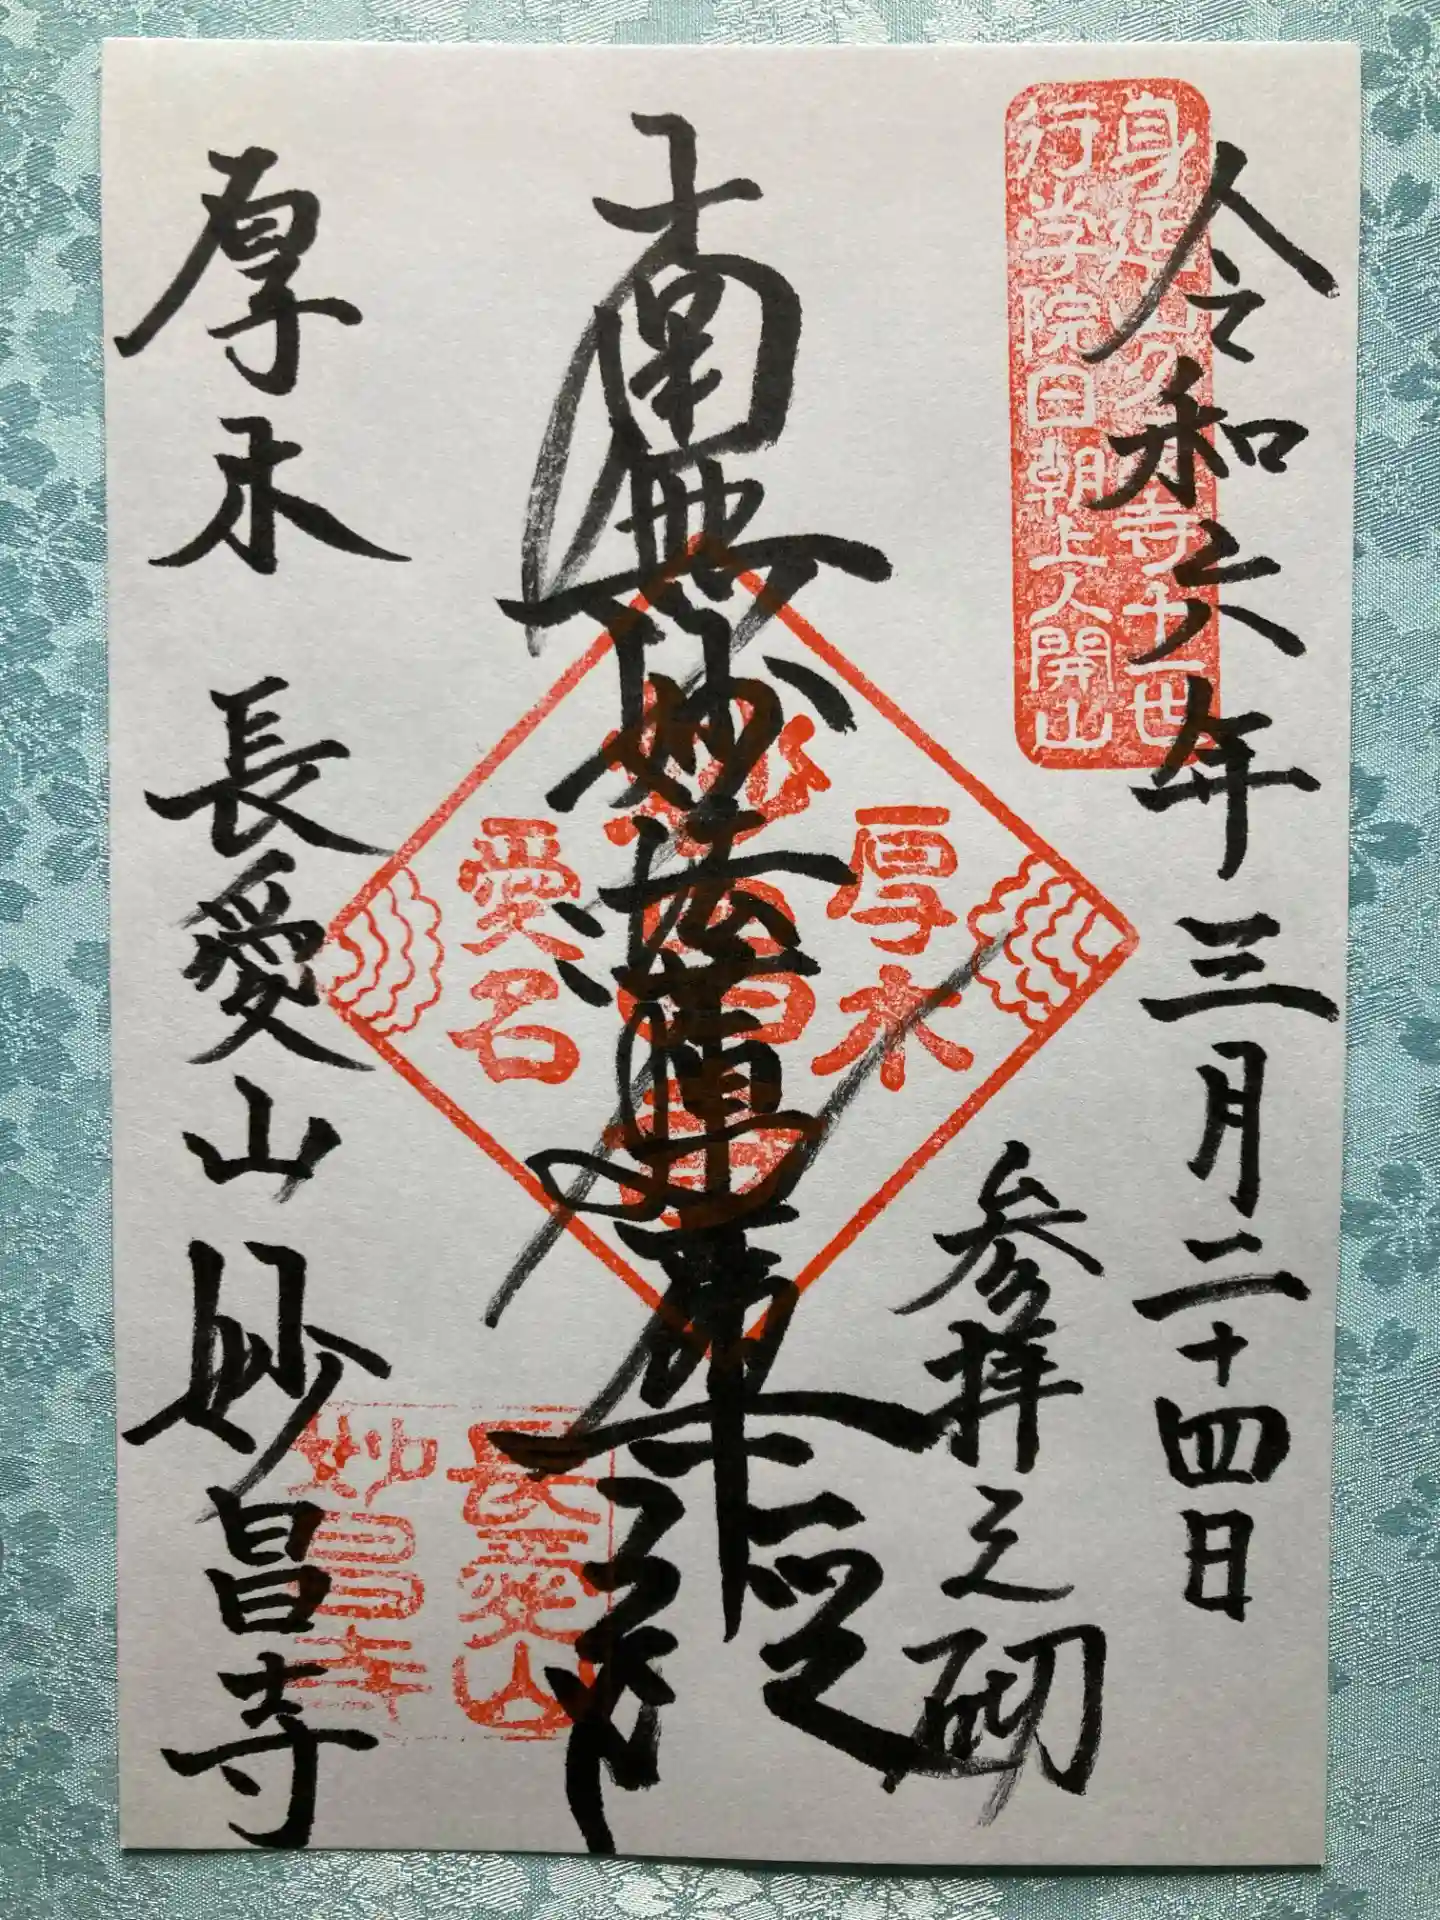 令和六年三月二十四日
身延山久遠寺十一世
行学院日朝上人開山
参拝之砌
南無妙法蓮華経
厚木
妙昌寺
愛名
長愛山
妙昌寺
厚木 長愛山 妙昌寺